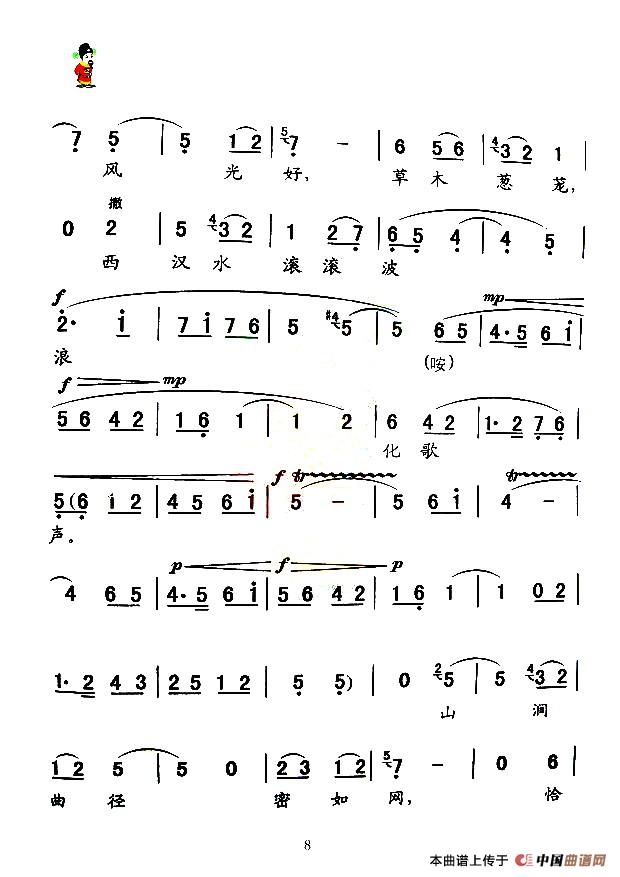 7 5 | 5 1 2 | 5 7 - | 6 5 6 | 4 3 2 1 |
风 光 好, 草 木 葱 茏,
撒
0 2 | 5 4 3 2 | 1 2 7 | 6 5 4 | 4 5 |
西 汉 水 滚 滚 波
f mp
2· i | 7 i 7 6 | 5 #4 5 | 5 6 5 | 4·5 6 i |
浪 (咹)
f mp
5 6 4 2 | 1 6 1 | 1 2 | 6 4 2 | 1·2 7 6 |
化 歌
f tr tr
5 (6 i 2 | 4 5 6 i | 5 - | 5 6 i | 4 - |
声。
p f p
4 6 5 | 4·5 6 i | 5 6 4 2 | 1 6 1 | 1 0 2 |
1·2 4 3 | 2 5 1 2 | 5 5) | 0 2 5 | 5 4 3 2 |
山 涧
1 2 5 | 5 0 | 2 3 1 2 | 5 7 - | 0 6 |
曲 径 密 如 网, 恰
8
本曲谱上传于 中国曲谱网